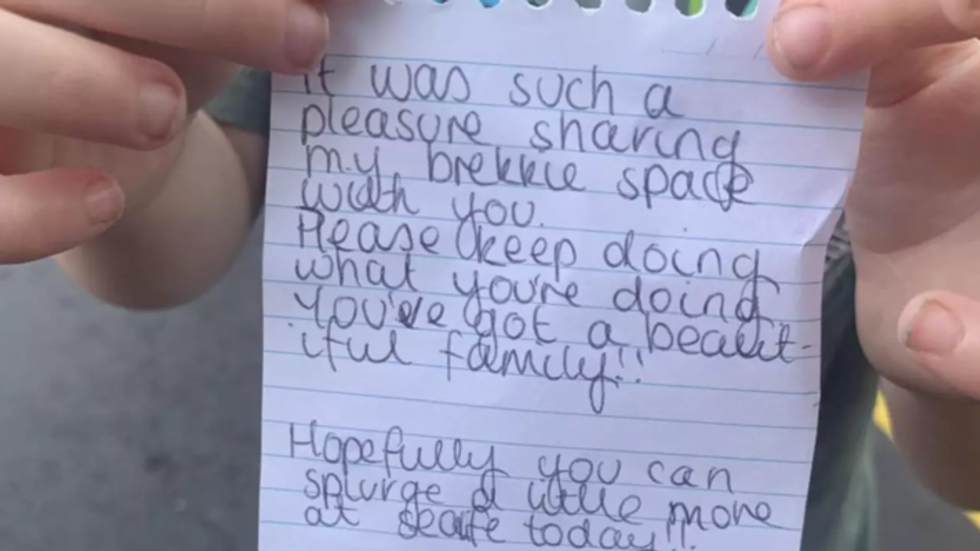 It was such a
pleasure sharing
my brekkie space
with you.
Please keep doing
what you're doing
you've got a beaut-
iful family!!
Hopefully you can
splurge a little more
at today!!